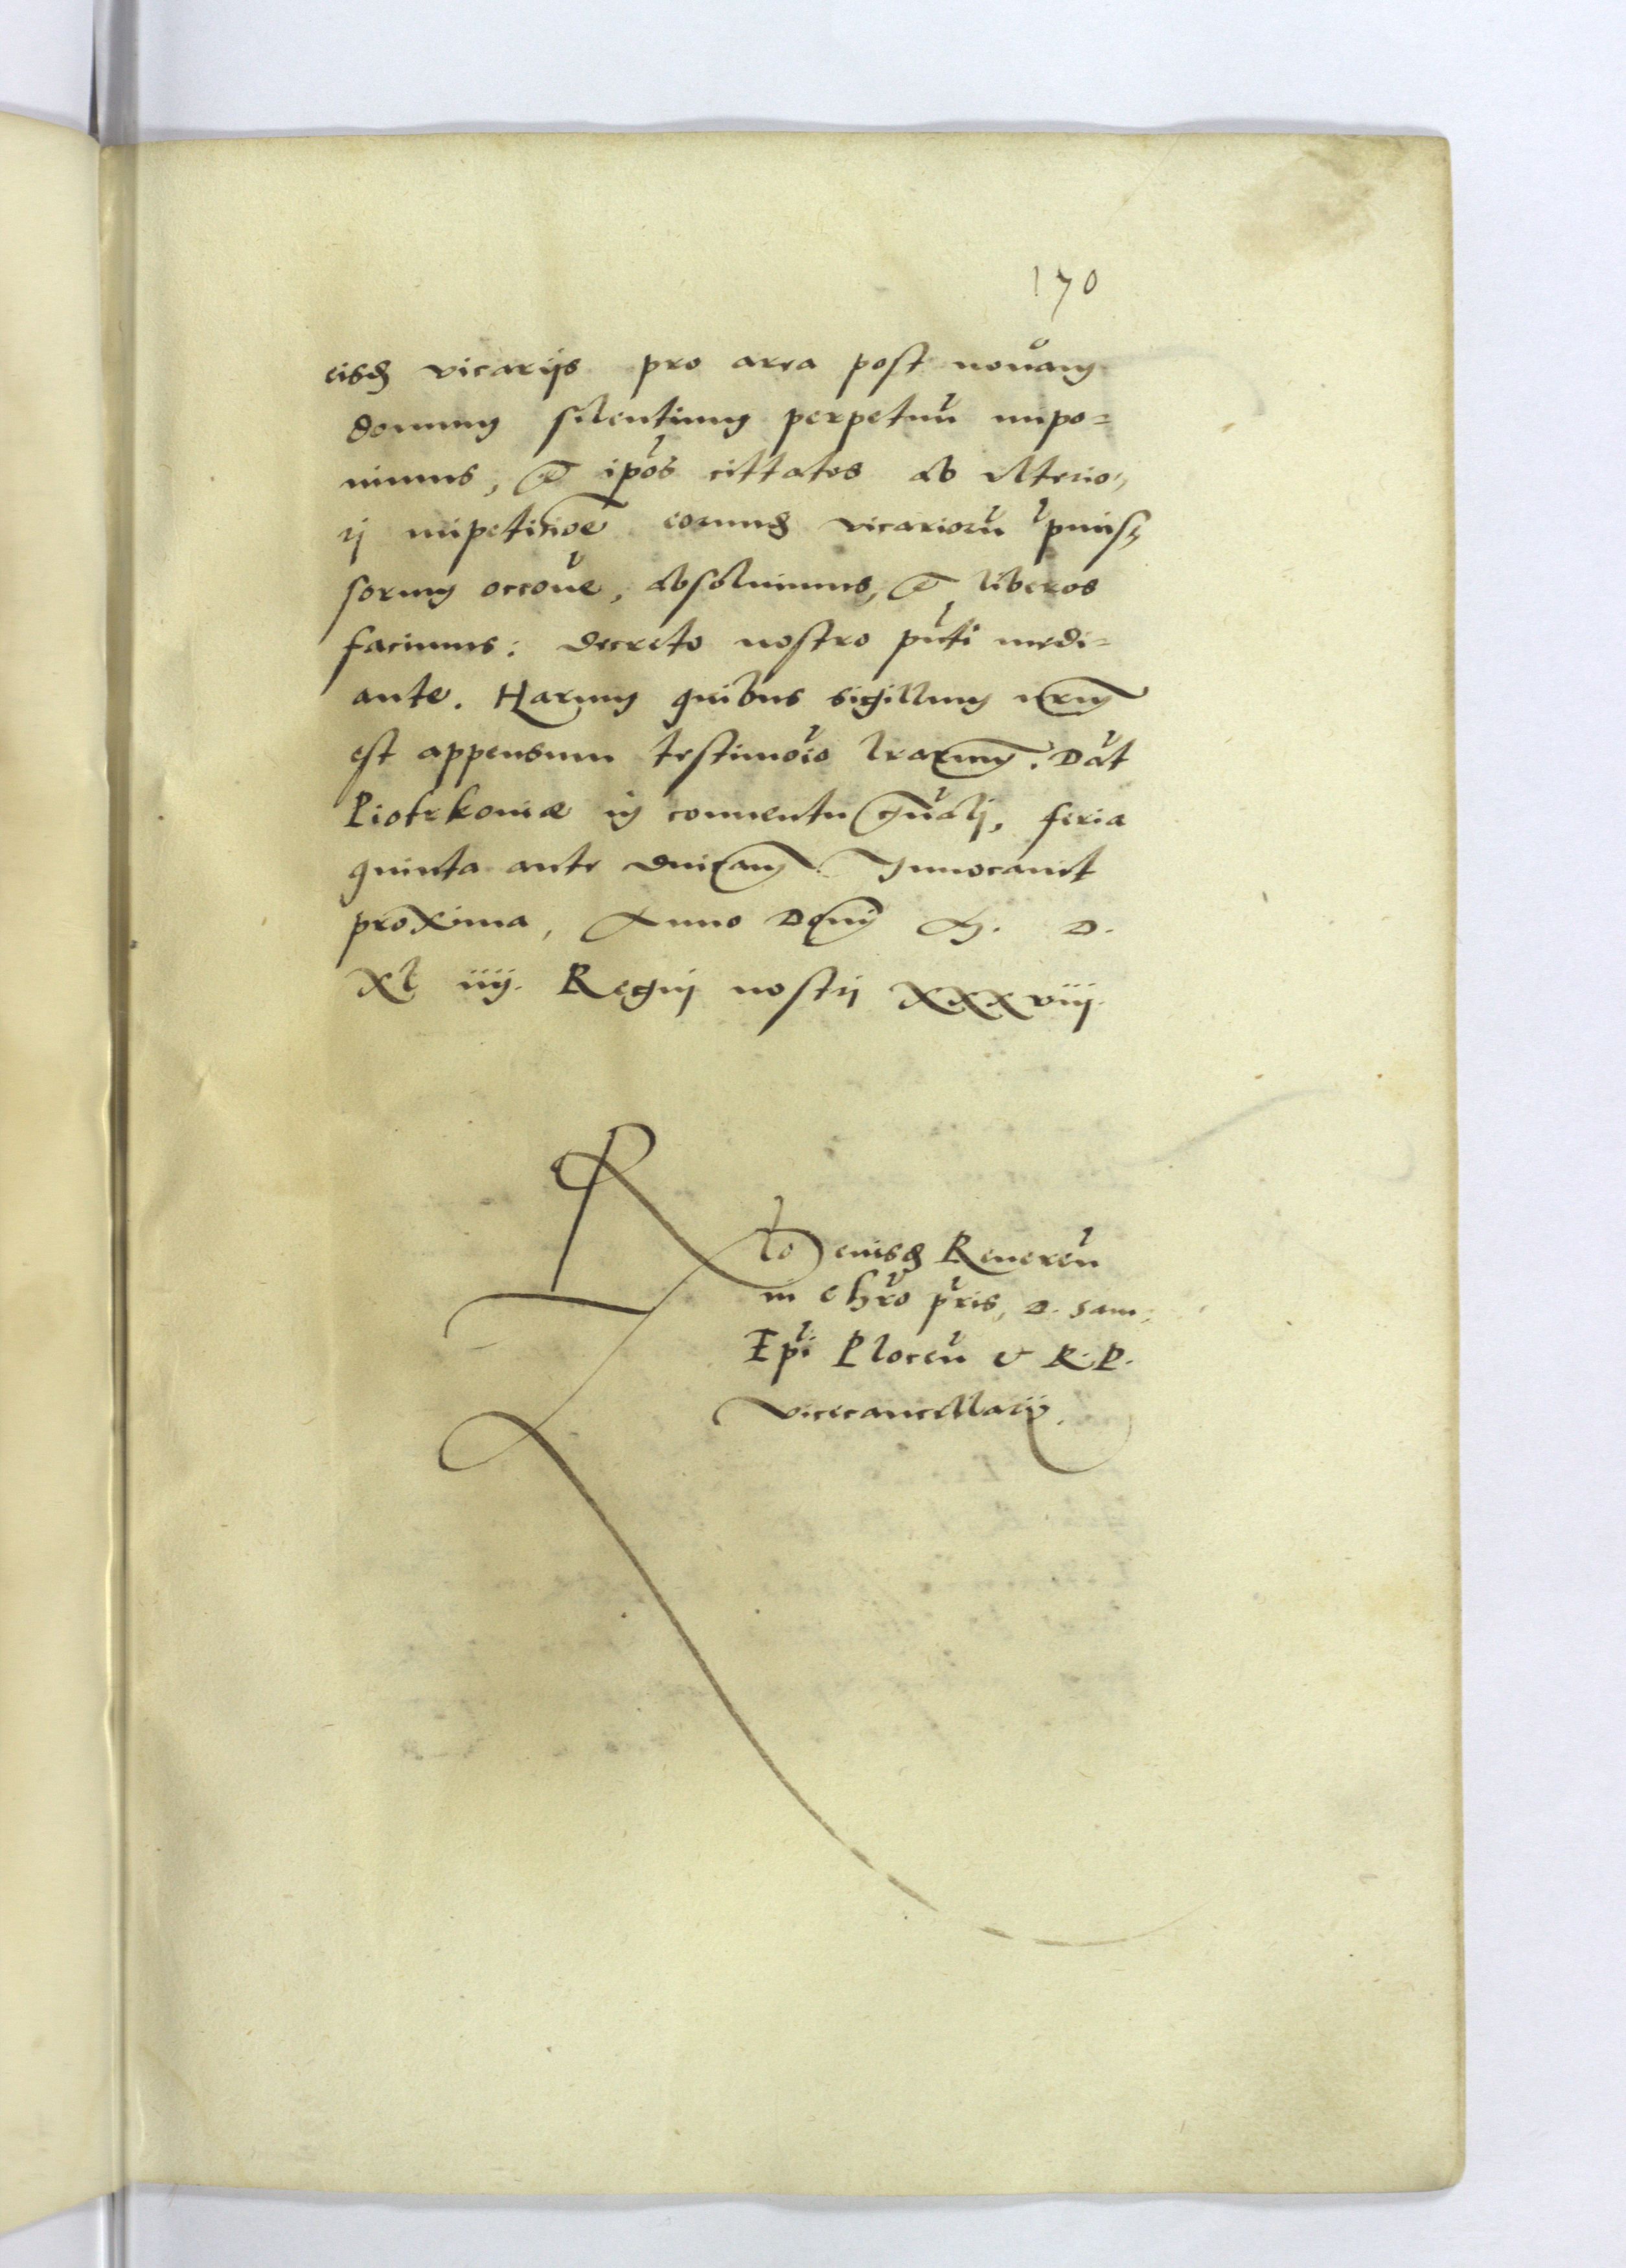 170
eisd vicarijs pro area post novam
domum silentium perpetuu impo=
nimus, et ipos cittatos ab ulterio,
rj impetitioe eorumd vicarioru pmis,
sorum occoe, absoluimus, et liberos
facimus: decreto nostro pnti medi=
ante. Harum quibus sigillum nrm
est appensum testimoio lrarum. Dat
Piotrkoviæ in conventu gnalj, feria
quinta ante dnicam Invocavit
proxima, Anno Dnj M. D.
Xl iiij. Regnj nostrj XXXviij.
Rlo eiusd Reveren
in Chro pris, D. Sam,
Epi Plocen & R. P.
Vicecancellarij.